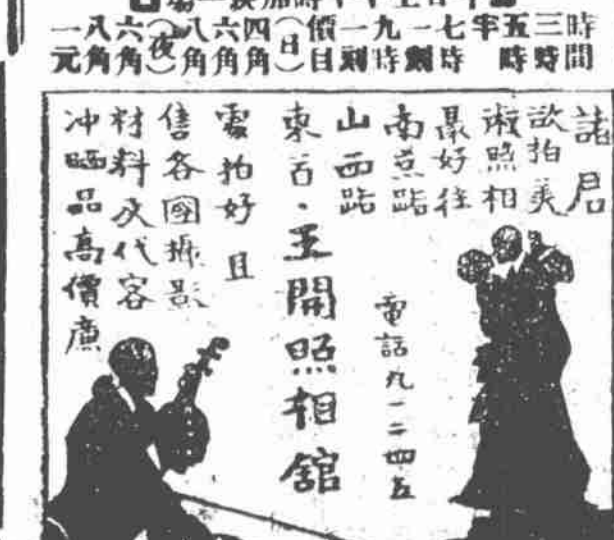 時間
三時
五時
半
七時
一刻
九時
一刻
價目
(日)
四角
六角
八角
(夜)
六角
八角
一元
諸君
欲拍美
術照相
最好往
南京路
山西路
東首·王開照相館
電話九一二四五
拍好且
售各國攝影
材料及代客
冲晒品高價廉